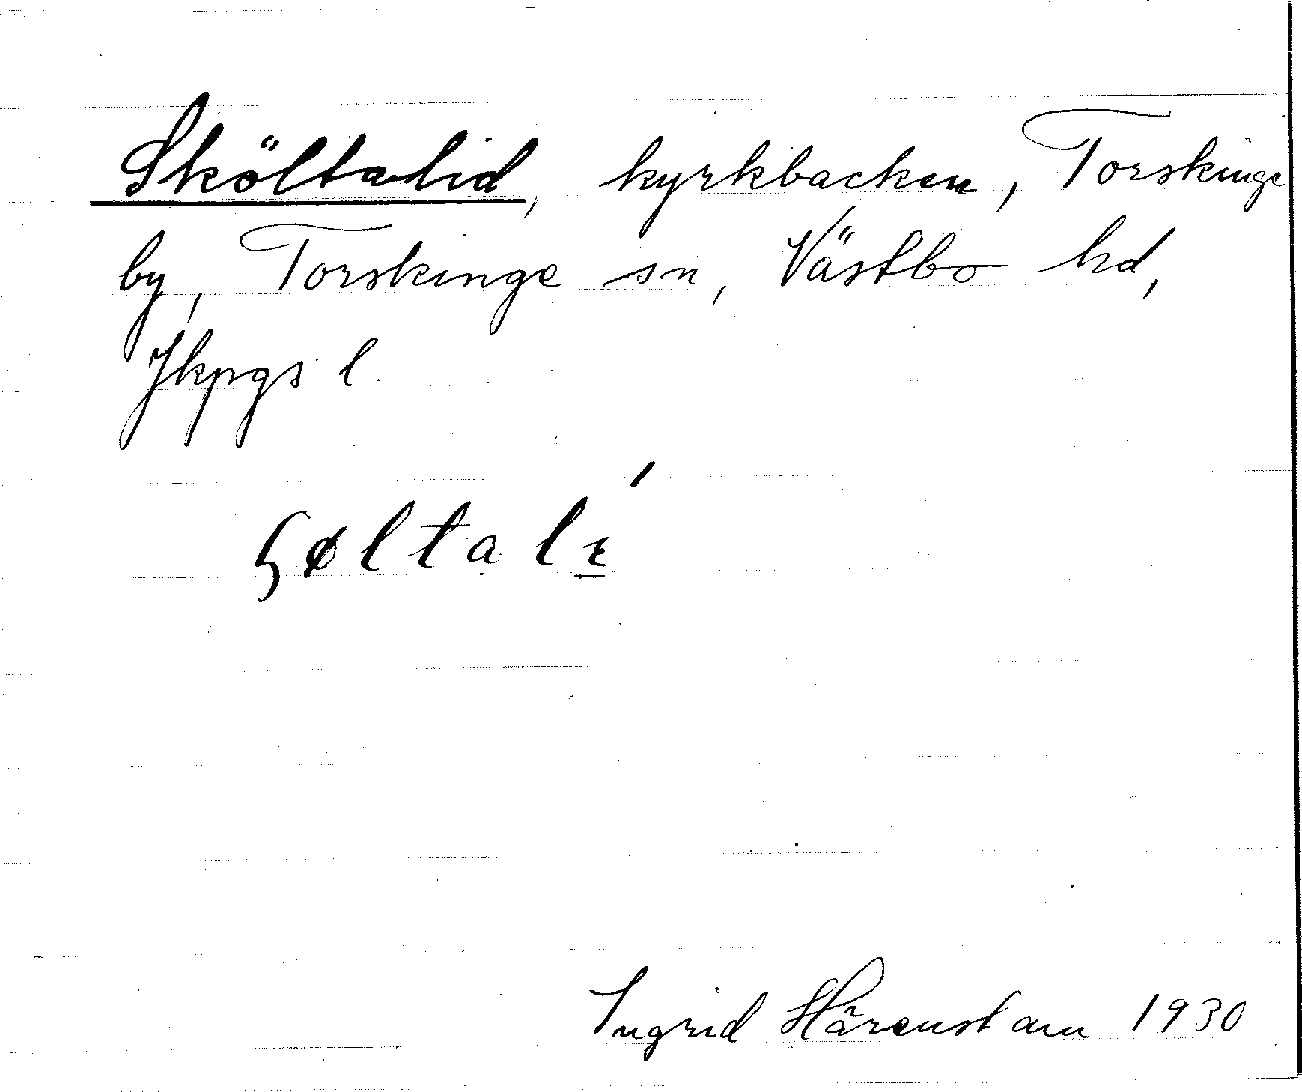 Sköltalid, kyrkbacken, Torskinge
by, Torskinge sn, Västbo hd,
Jkpgs l.
ʢøltalı̱́
Ingrid Härenstam 1930